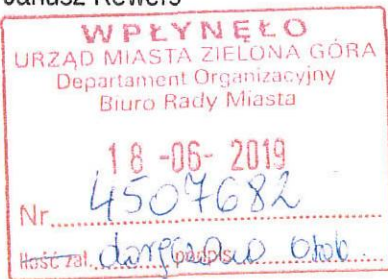 Janusz Rewers
WPŁYNĘŁO
URZĄD MIASTA ZIELONA GÓRA
Departament Organizacyjny
Biuro Rady Miasta
18 -06- 2019
Nr 4507682
Ilość zał. podpis